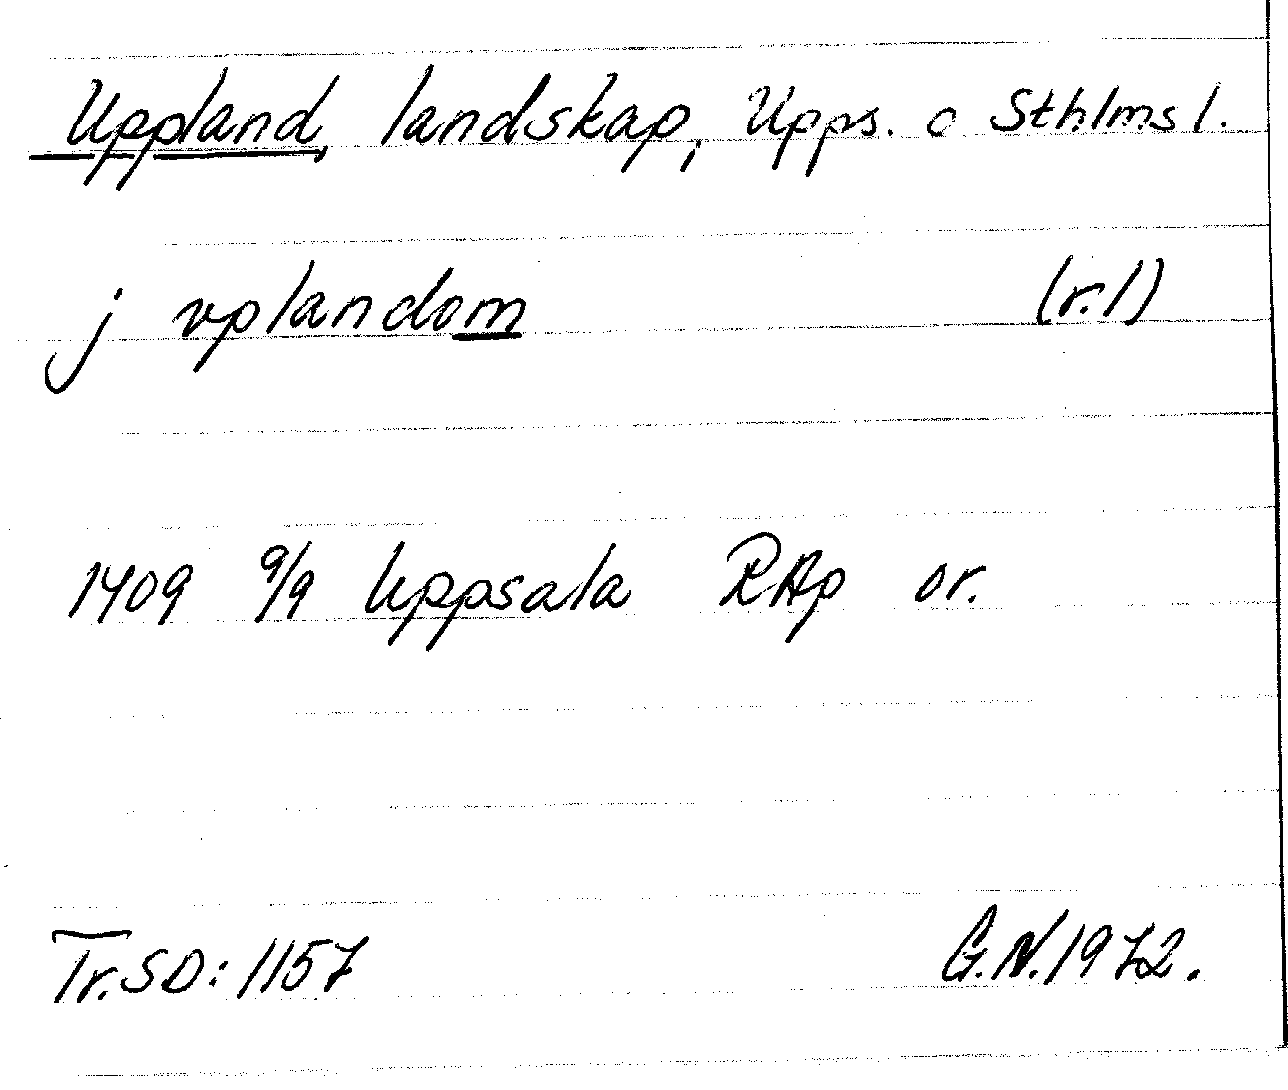 Uppland, landskap, Upps. o Sthlms l.
j vplandom (r.l)
1409 9/9 Uppsala RAp or.
Tr. SD: 1157 G.N. 1972.